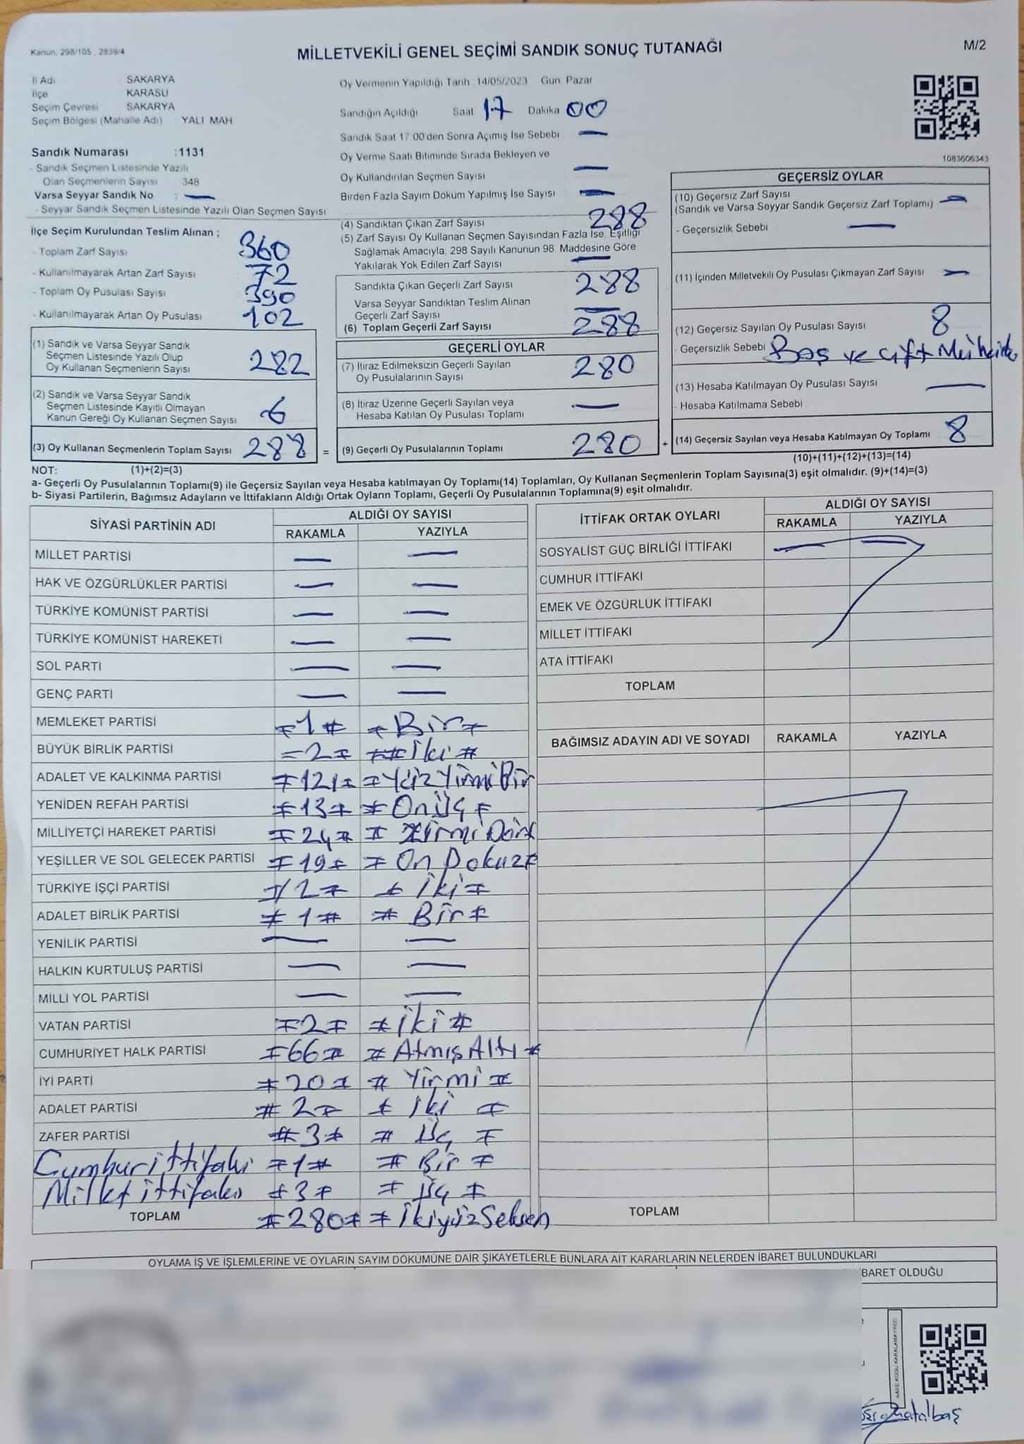 Kanun, 298/105 , 2839/4
MİLLETVEKİLİ GENEL SEÇİMİ SANDIK SONUÇ TUTANAĞI
M/2
İl Adı SAKARYA
İlçe KARASU
Seçim Çevresi SAKARYA
Seçim Bölgesi (Mahalle Adı) YALI MAH
Sandık Numarası :1131
- Sandık Seçmen Listesinde Yazılı
Olan Seçmenlerin Sayısı 348
Varsa Seyyar Sandık No : —
- Seyyar Sandık Seçmen Listesinde Yazılı Olan Seçmen Sayısı
İlçe Seçim Kurulundan Teslim Alınan ;
- Toplam Zarf Sayısı 360
- Kullanılmayarak Artan Zarf Sayısı 72
- Toplam Oy Pusulası Sayısı 390
- Kullanılmayarak Artan Oy Pusulası 102
(1) Sandık ve Varsa Seyyar Sandık
Seçmen Listesinde Yazılı Olup
Oy Kullanan Seçmenlerin Sayısı 282
(2) Sandık ve Varsa Seyyar Sandık
Seçmen Listesinde Kayıtlı Olmayan
Kanun Gereği Oy Kullanan Seçmen Sayısı 6
(3) Oy Kullanan Seçmenlerin Toplam Sayısı 288 =
Oy Vermenin Yapıldığı Tarih 14/05/2023 Gün Pazar
Sandığın Açıldığı Saat 17 Dakika 00
Sandık Saat 17:00 den Sonra Açımış İse Sebebi —
Oy Verme Saati Bitiminde Sırada Bekleyen ve
Oy Kullandırılan Seçmen Sayısı —
Birden Fazla Sayım Döküm Yapılmış İse Sayısı —
(4) Sandıktan Çıkan Zarf Sayısı 288
(5) Zarf Sayısı Oy Kullanan Seçmen Sayısından Fazla İse, Eşitliği
Sağlamak Amacıyla, 298 Sayılı Kanunun 98. Maddesine Göre
Yakılarak Yok Edilen Zarf Sayısı —
Sandıkta Çıkan Geçerli Zarf Sayısı 288
Varsa Seyyar Sandıktan Teslim Alınan
Geçerli Zarf Sayısı —
(6) Toplam Geçerli Zarf Sayısı 288
GEÇERLİ OYLAR
(7) İtiraz Edilmeksizin Geçerli Sayılan
Oy Pusulalarının Sayısı 280
(8) İtiraz Üzerine Geçerli Sayılan veya
Hesaba Katılan Oy Pusulası Toplamı —
(9) Geçerli Oy Pusulalarının Toplamı 280 +
1083606343
GEÇERSİZ OYLAR
(10) Geçersiz Zarf Sayısı
(Sandık ve Varsa Seyyar Sandık Geçersiz Zarf Toplamı) —
- Geçersizlik Sebebi —
(11) İçinden Milletvekili Oy Pusulası Çıkmayan Zarf Sayısı —
(12) Geçersiz Sayılan Oy Pusulası Sayısı 8
- Geçersizlik Sebebi Boş ve Çift
(13) Hesaba Katılmayan Oy Pusulası Sayısı —
- Hesaba Katılmama Sebebi
(14) Geçersiz Sayılan veya Hesaba Katılmayan Oy Toplamı 8
(10)+(11)+(12)+(13)=(14)
NOT: (1)+(2)=(3)
a- Geçerli Oy Pusulalarının Toplamı(9) ile Geçersiz Sayılan veya Hesaba katılmayan Oy Toplamı(14) Toplamları, Oy Kullanan Seçmenlerin Toplam Sayısına(3) eşit olmalıdır. (9)+(14)=(3)
b- Siyasi Partilerin, Bağımsız Adayların ve İttifakların Aldığı Ortak Oyların Toplamı, Geçerli Oy Pusulalarının Toplamına(9) eşit olmalıdır.
SİYASİ PARTİNİN ADI
ALDIĞI OY SAYISI
RAKAMLA YAZIYLA
MİLLET PARTİSİ — —
HAK VE ÖZGÜRLÜKLER PARTİSİ — —
TÜRKİYE KOMÜNİST PARTİSİ — —
TÜRKİYE KOMÜNİST HAREKETİ — —
SOL PARTİ — —
GENÇ PARTİ — —
MEMLEKET PARTİSİ #1# #Bir#
BÜYÜK BİRLİK PARTİSİ =2# ##İki#
ADALET VE KALKINMA PARTİSİ #121# #Yüz Yirmi Bir
YENİDEN REFAH PARTİSİ #13# #Onüç#
MİLLİYETÇİ HAREKET PARTİSİ #24# # Yirmi Dört
YEŞİLLER VE SOL GELECEK PARTİSİ #19# #On Dokuz#
TÜRKİYE İŞÇİ PARTİSİ #2# #İki#
ADALET BİRLİK PARTİSİ #1# #Bir#
YENİLİK PARTİSİ — —
HALKIN KURTULUŞ PARTİSİ — —
MİLLİ YOL PARTİSİ — —
VATAN PARTİSİ #2# #İki#
CUMHURİYET HALK PARTİSİ #66# #Atmış Altı#
İYİ PARTİ #20# #Yirmi#
ADALET PARTİSİ #2# #İki#
ZAFER PARTİSİ #3# #Üç#
Cumhur ittifakı #1# #Bir#
Millet ittifakı #3# #Üç#
TOPLAM #280# #İkiyüz Seksen
İTTİFAK ORTAK OYLARI
ALDIĞI OY SAYISI
RAKAMLA YAZIYLA
SOSYALİST GÜÇ BİRLİĞİ İTTİFAKI
CUMHUR İTTİFAKI
EMEK VE ÖZGÜRLÜK İTTİFAKI
MİLLET İTTİFAKI
ATA İTTİFAKI
TOPLAM
BAĞIMSIZ ADAYIN ADI VE SOYADI RAKAMLA YAZIYLA
TOPLAM
OYLAMA İŞ VE İŞLEMLERİNE VE OYLARIN SAYIM DÖKÜMÜNE DAİR ŞİKAYETLERLE BUNLARA AİT KARARLARIN NELERDEN İBARET BULUNDUKLARI
BARET OLDUĞU